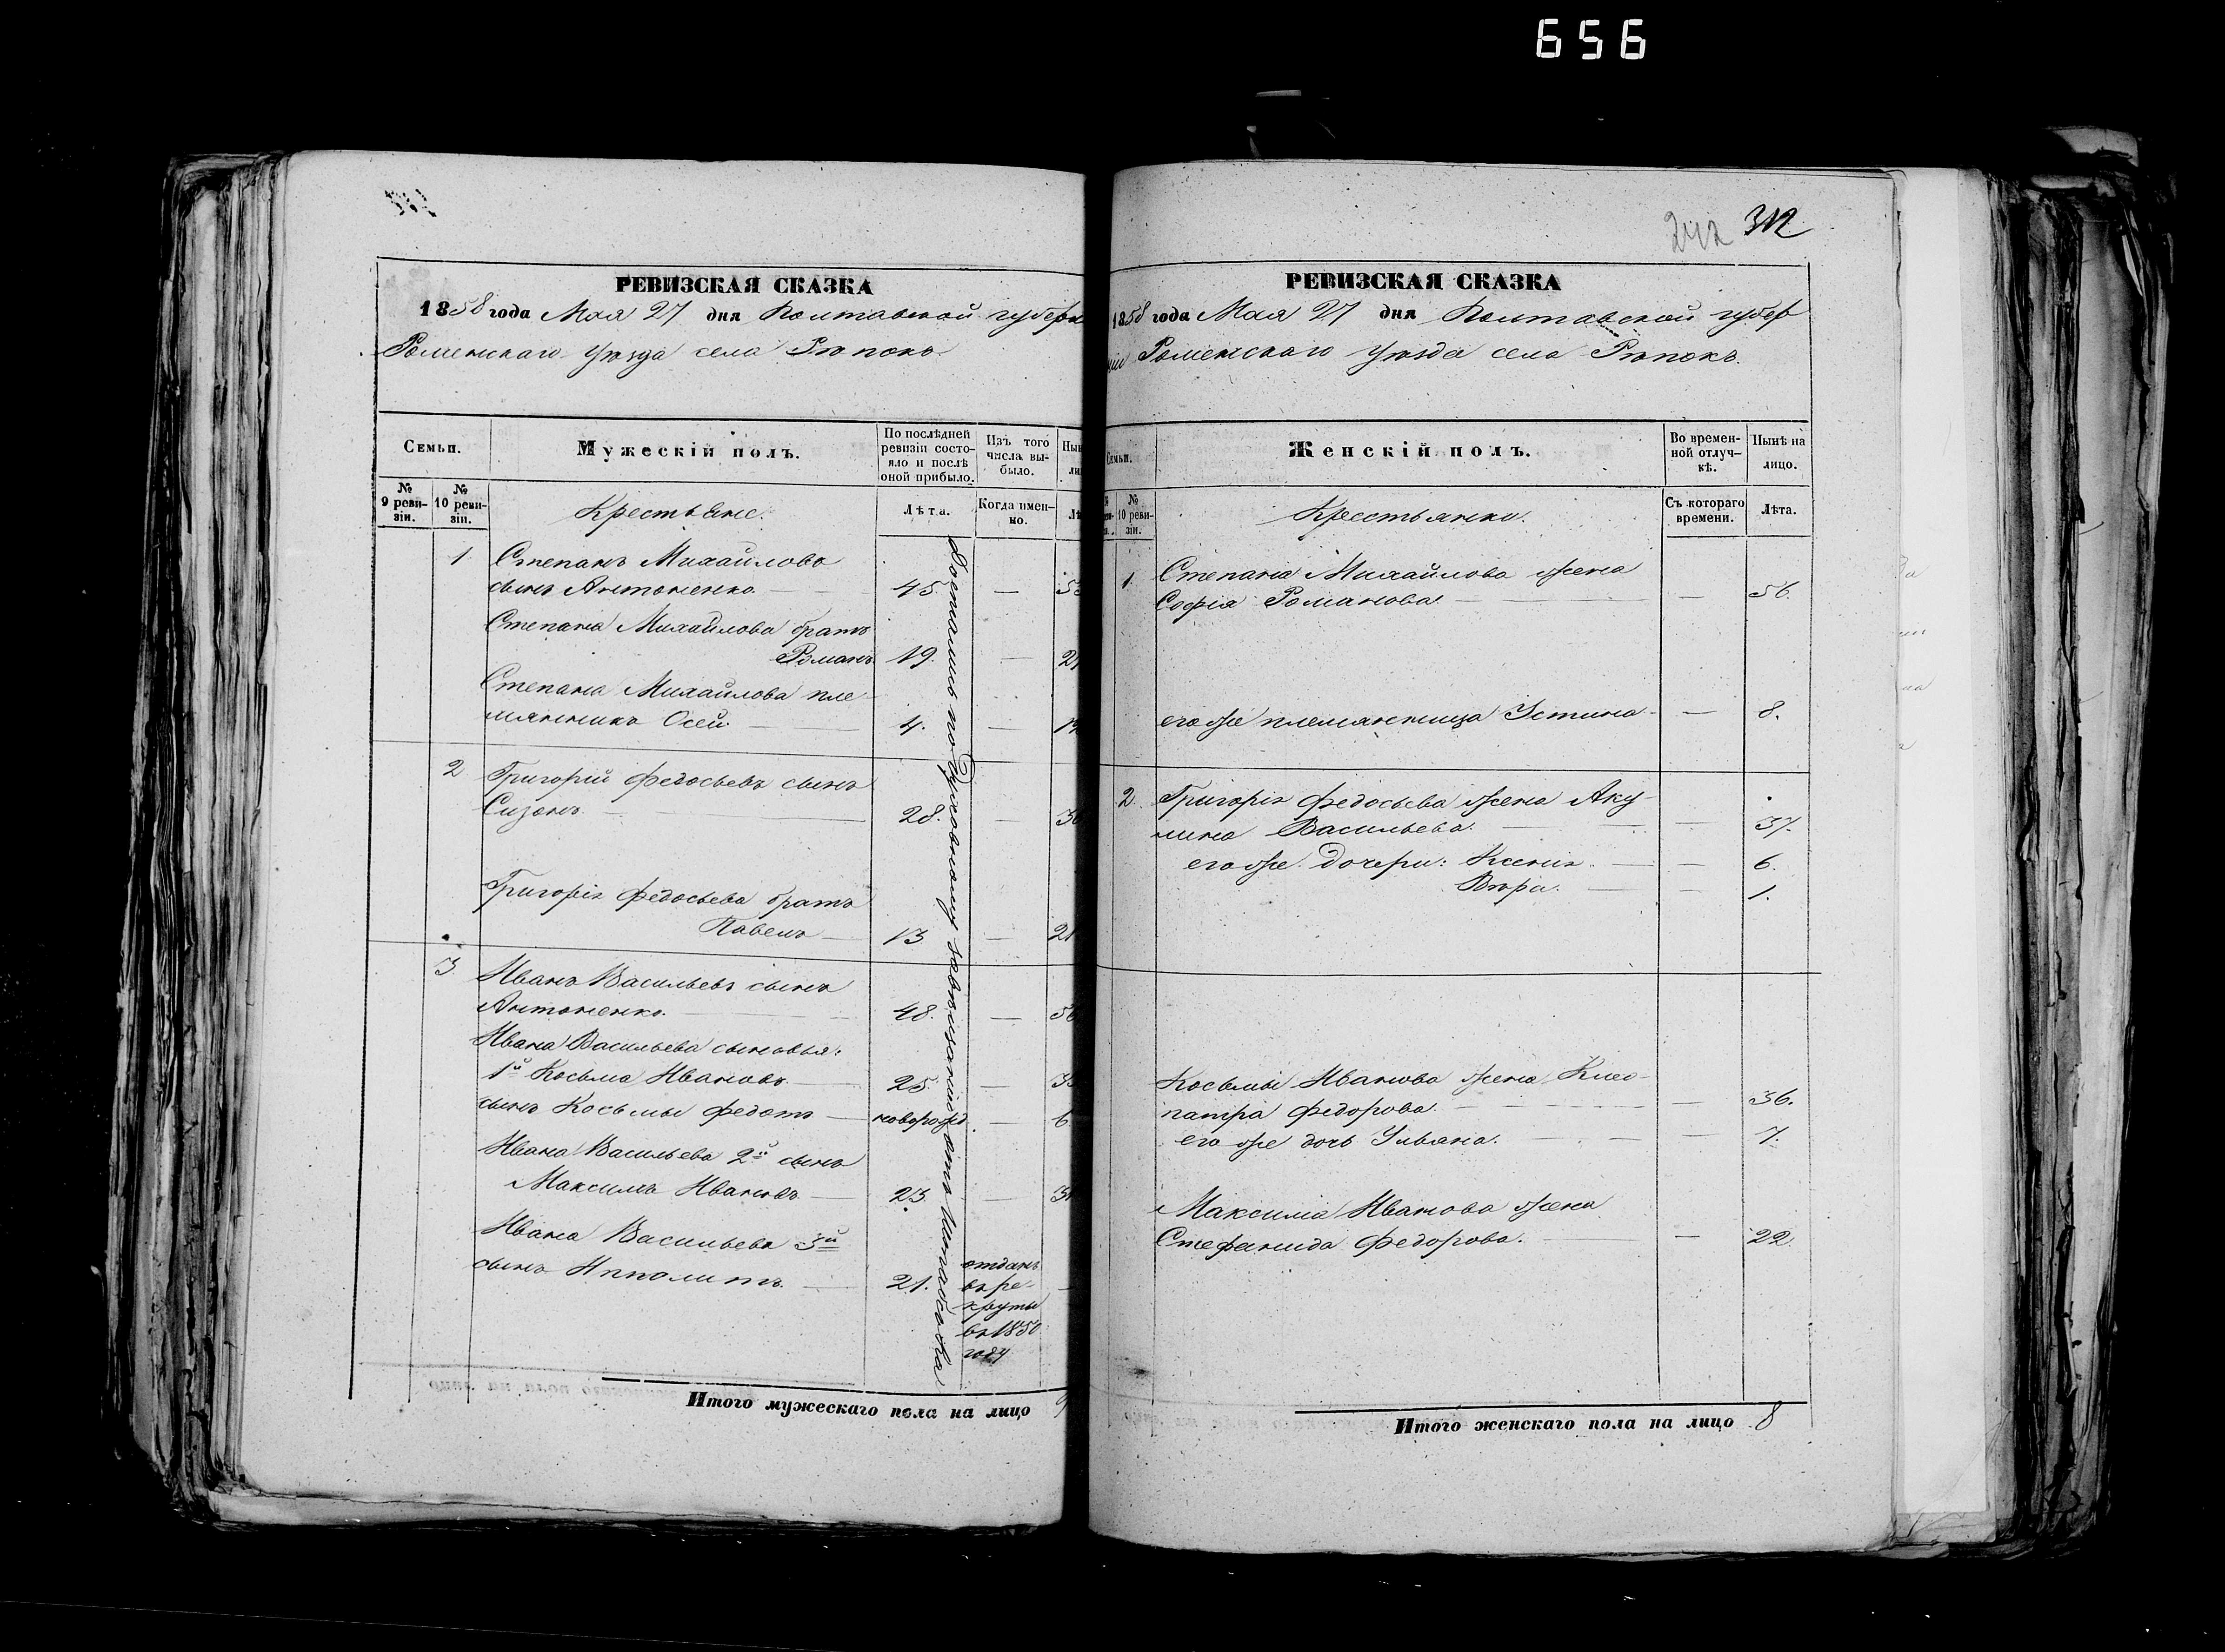 656
242 312
РЕВИЗСКАЯ СКАЗКА
1858 года Мая 27 дня Полтавской губерн
Роменскаго Уѣзда села Рѣпокъ
Семьи.
Мужескій полъ.
По послѣдней ревизіи состояло и послѣ оной прибыло.
Изъ того числа выбыло.
№ 9 ревизіи.
№ 10 ревизіи.
Крестьяне.
Лѣта.
Когда именно.
1 Степанъ Михайловъ
сынъ Антоненко 45. —
Степана Михайлова братъ
Романъ 19. —
Степана Михайлова пле-
мянникъ Осей 4. —
2 Григорій Федосьевъ сынъ
Сизонъ 28. —
Григорія Федосьева братъ
Павелъ 13 — 21
3 Иванъ Васильевъ сынъ
Антоненко. 48. —
Ивана Васильева сыновья:
1й Косьма Ивановъ 25 —
сынъ Косьмы Федотъ новорожд. — 6
Ивана Васильева 2й сынъ
Максимъ Ивановъ 23 —
Ивана Васильева 3й
сынъ Ипполитъ 21.
отданъ
въ ре-
круты
въ 1850
году
Достались по Духовному завѣщанію отъ
Итого мужескаго пола на лицо 9
РЕВИЗСКАЯ СКАЗКА
1858 года Мая 27 дня Полтавской губер
ніи Роменскаго Уѣзда села Рѣпокъ.
Семьи.
Женскій полъ.
Во временной отлучкѣ.
Нынѣ на лицо.
№ 10 ревизіи.
Крестьянки.
Съ котораго времени.
Лѣта.
1. Степана Михайлова жена
Софія Романова — 56.
его же племянница Устина — 8.
2. Григорія Федосьева жена Аку-
лина Васильева. — 37.
его же дочери: Ксенія — 6.
Вѣра. — 1.
Косьмы Иванова жена Клео-
патра Федорова. — 36.
его же дочь Ульяна. — 7.
Максима Иванова жена
Стефанида Федорова. — 22.
Итого женскаго пола на лицо 8